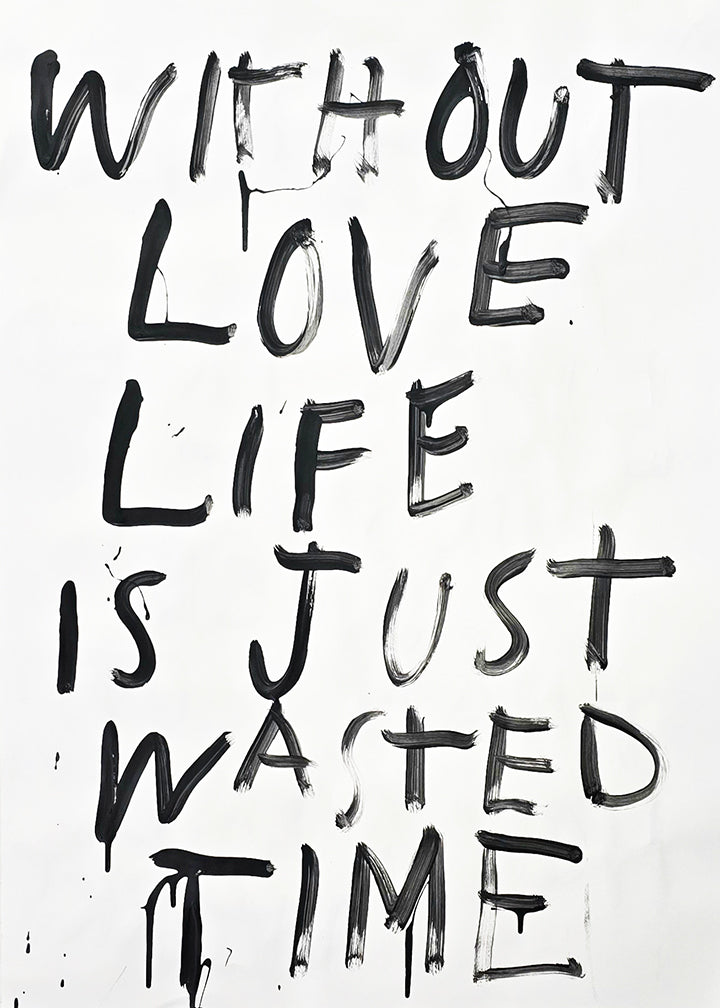 WITHOUT
LOVE
LIFE
IS JUST
WASTED
TIME